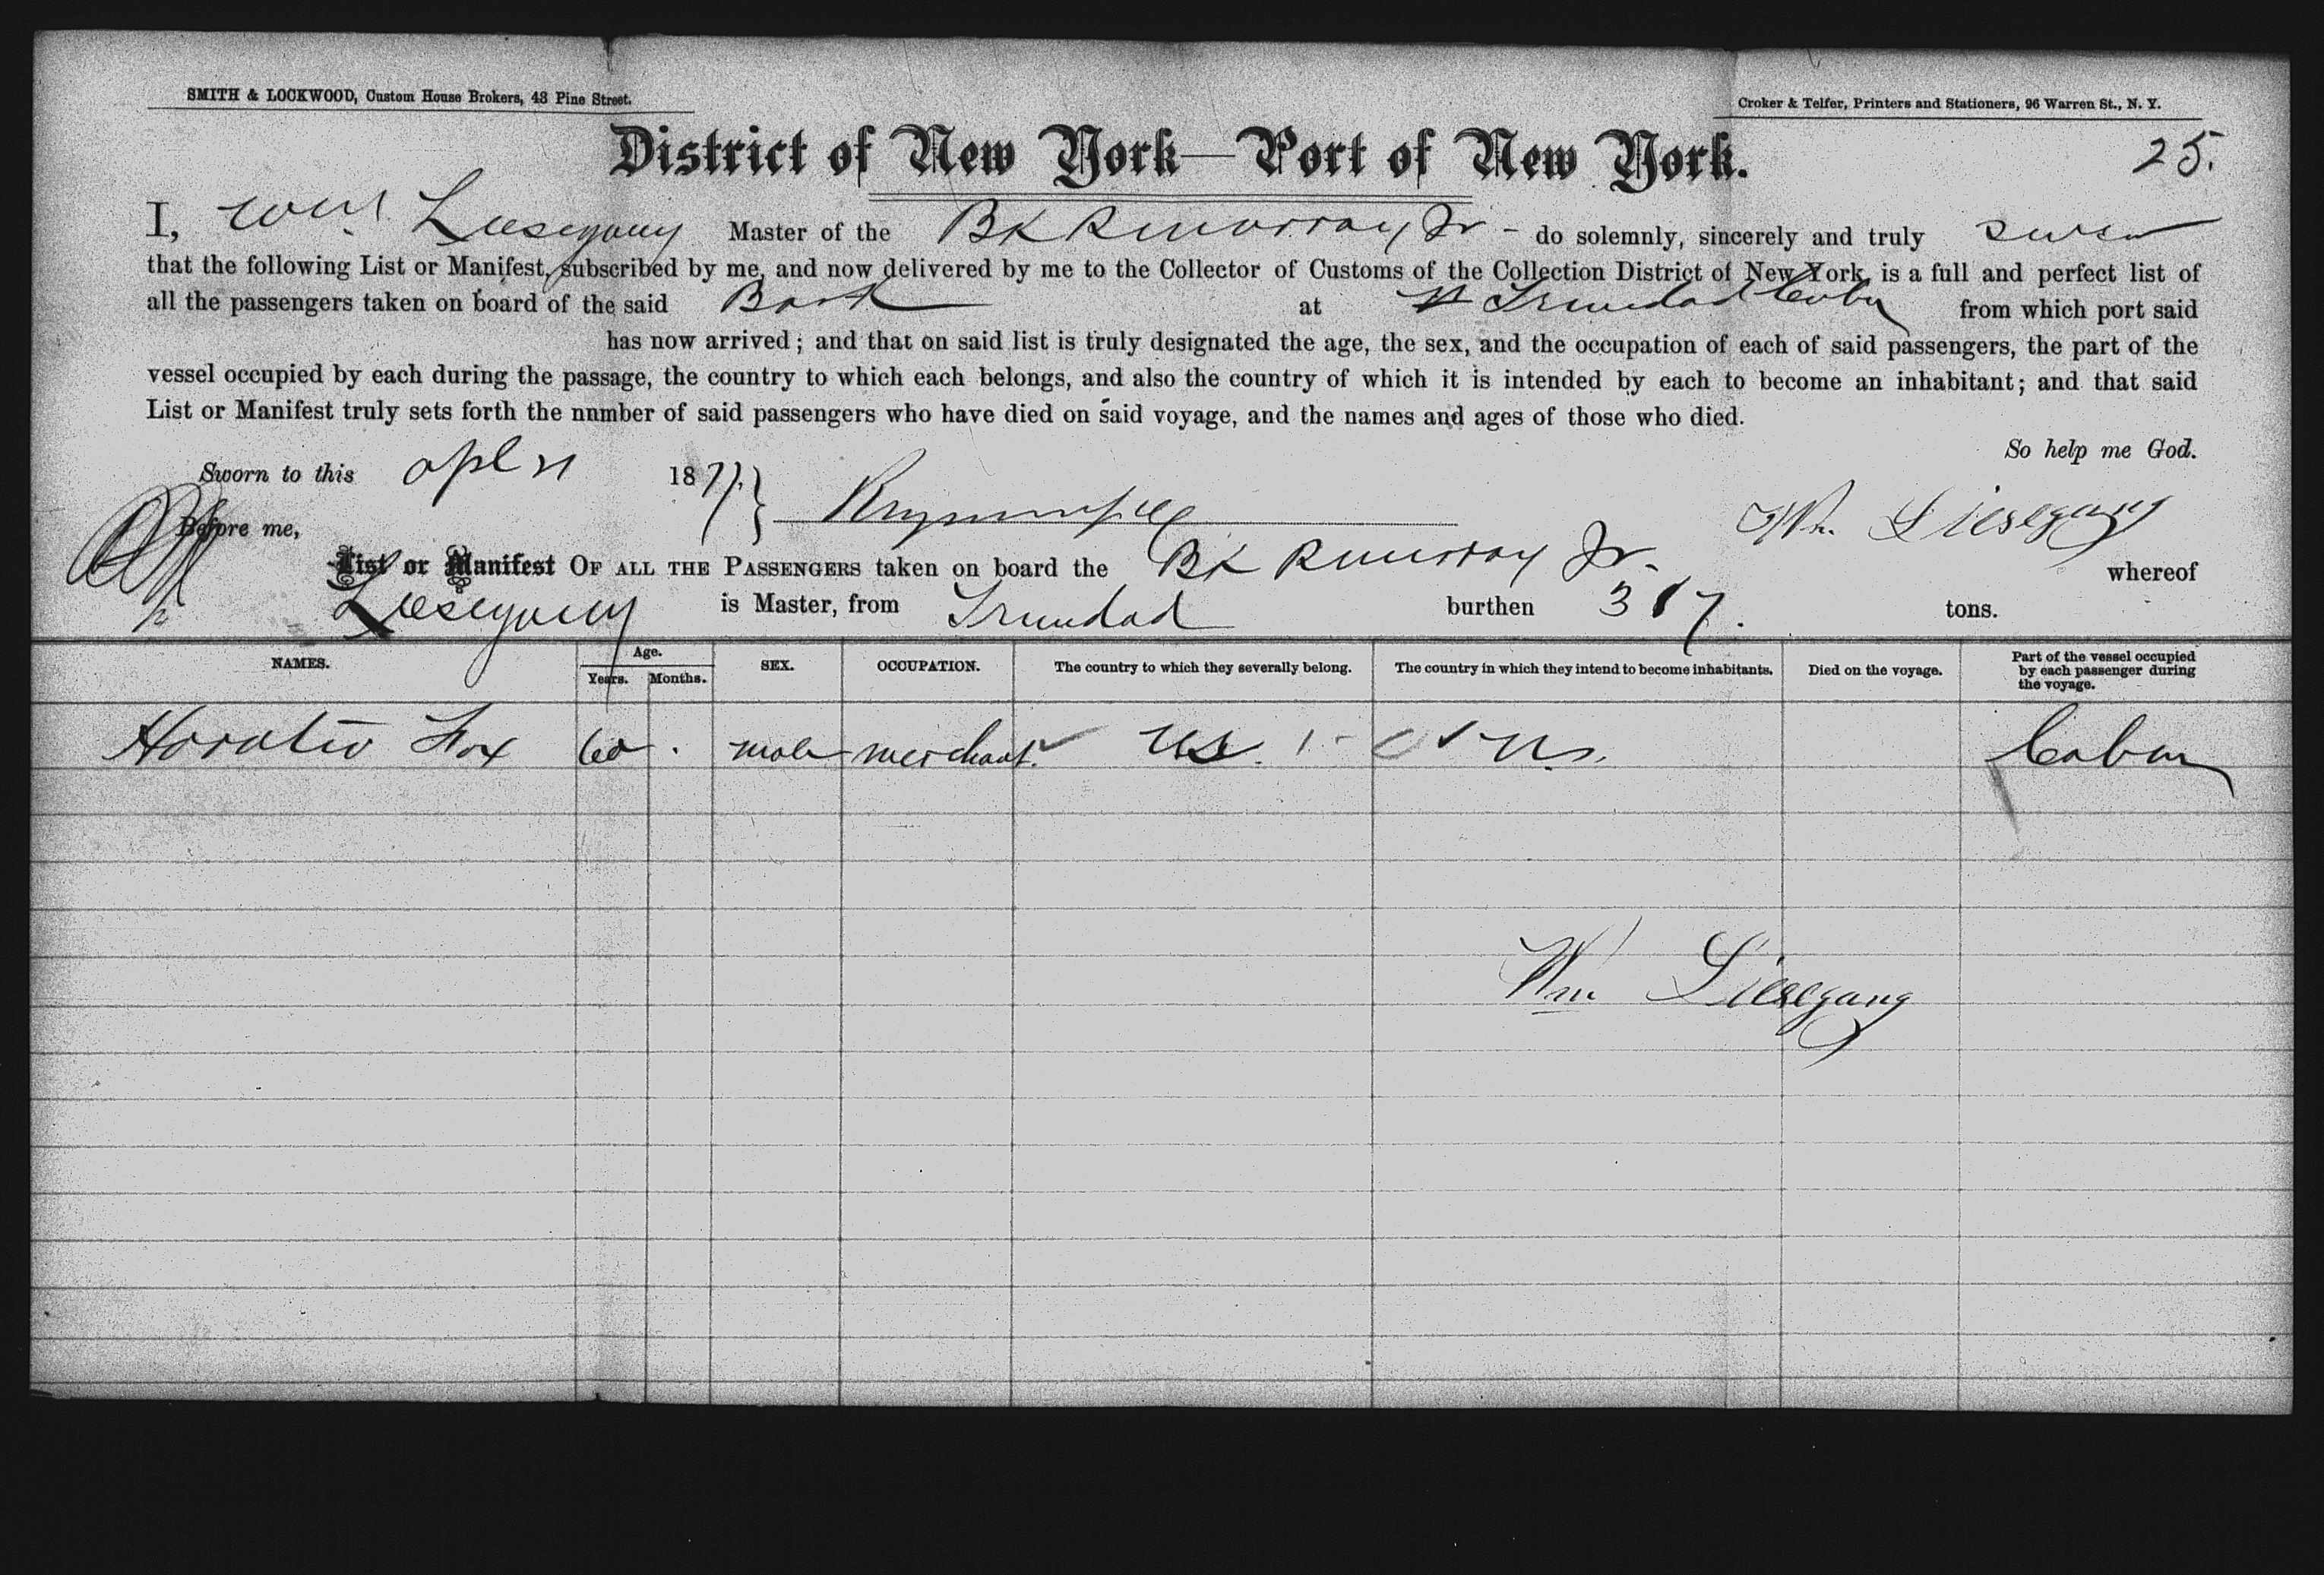 SMITH & LOCKWOOD, Custom House Brokers, 43 Pine Street.
Croker & Telfer, Printers and Stationers, 96 Warren St., N. Y.
District of New York—Port of New York.
25.
I, Wm Liesegang Master of the Bk R Murray Jr - do solemnly, sincerely and truly swear
that the following List or Manifest, subscribed by me, and now delivered by me to the Collector of Customs of the Collection District of New York, is a full and perfect list of
all the passengers taken on board of the said Bark at Trinidad Cuba from which port said
has now arrived; and that on said list is truly designated the age, the sex, and the occupation of each of said passengers, the part of the
vessel occupied by each during the passage, the country to which each belongs, and also the country of which it is intended by each to become an inhabitant; and that said
List or Manifest truly sets forth the number of said passengers who have died on said voyage, and the names and ages of those who died.
So help me God.
Sworn to this Apl 21 1877.
Before me,
Wm. Liesegang
List or Manifest OF ALL THE PASSENGERS taken on board the Bk R Murray Jr. whereof
Liesegang is Master, from Trinidad burthen 317. tons.
NAMES. Age. Years. Months. SEX. OCCUPATION. The country to which they severally belong. The country in which they intend to become inhabitants. Died on the voyage. Part of the vessel occupied by each passenger during the voyage.
Horatio Fox 60 male merchant. US. Cabin
Wm Liesegang